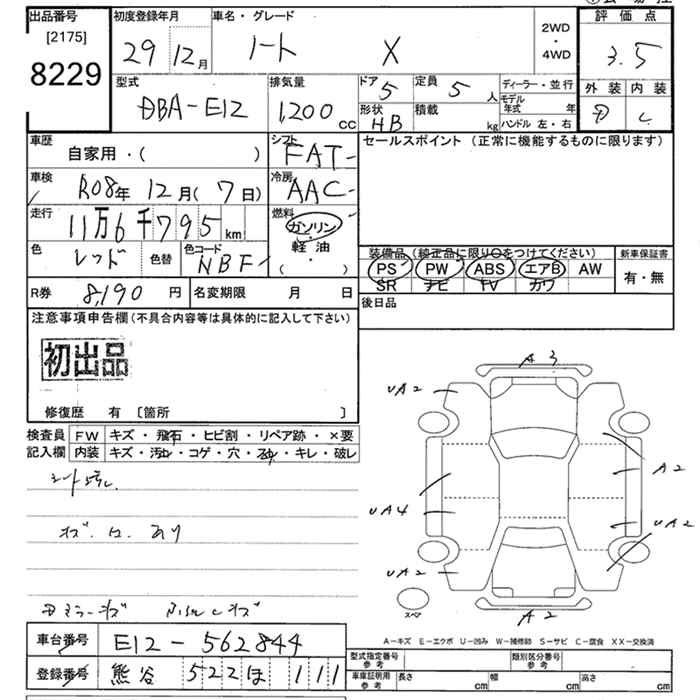 出品番号
[2175]
8229
初度登録年月
29 12月
車名・グレード
ノート X
2WD
・
4WD
評価点
3.5
外装 内装
D C
型式
DBA-E12
排気量
1,200 CC
ドア 5
定員 5 人
形状 HB
積載 kg
ディーラー・並行
モデル年式 年
ハンドル 左・右
車歴
自家用・( )
シフト
FAT
セールスポイント (正常に機能するものに限ります)
車検
R08年 12月(7日)
冷房
AAC
走行
11万6千795 km
燃料
ガソリン
軽油
( )
色
レッド
色替
色コード
NBF
装備品(純正品に限り○をつけてください)
PS PW ABS エアB AW
SR ナビ TV カワ
新車保証書
有・無
R券 8,190 円
名変期限 月 日
後日品
注意事項申告欄(不具合内容等は具体的に記入して下さい)
初出品
修復歴 有 〔箇所 〕
検査員記入欄
FW キズ・飛石・ヒビ割・リペア跡・×要
内装 キズ・汚れ・コゲ・穴・スレ・キレ・破レ
キズ.ヘコ.あり
A3
UA2
A2
UA4
UA2
UA2
A2
スペア
A-キズ E-エクボ U-凹み W-補修跡 S-サビ C-腐食 XX-交換済
車台番号 E12-562844
登録番号 熊谷 522 ほ 111
型式指定番号 参考
類別区分番号 参考
車庫証明用 参考
長さ cm
幅 cm
高さ cm